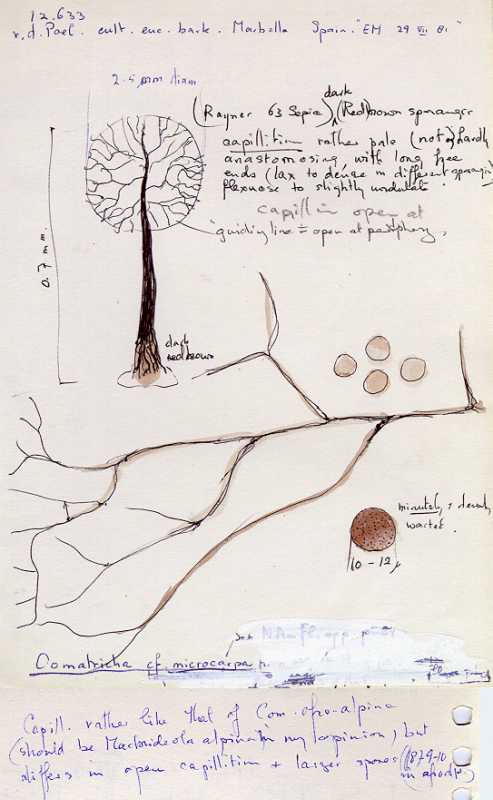 12.633
v.d. Pael. cult. euc. bark. Marbella Spain. EM 29 VII 81
2.5 mm diam
dark
(Rayner 63 Sepia) (Redbrown sporanger
capillitium rather pale (not) hardly
anastomosing, with long free
ends (lax to dense in different sporangia)
flexuose to slightly undulate.
capill in open at
"guiding line = open at periphery,
0.7 mm.
dark
red brown
minutely, densely
warted
10-12µ
N.Am.Fl. app. p.
Comatricha cf microcarpa
Capill. rather like that of Com. afro-alpina
(should be Macbrideola alpina in my opinion), but
differs in open capillitium + larger spores (